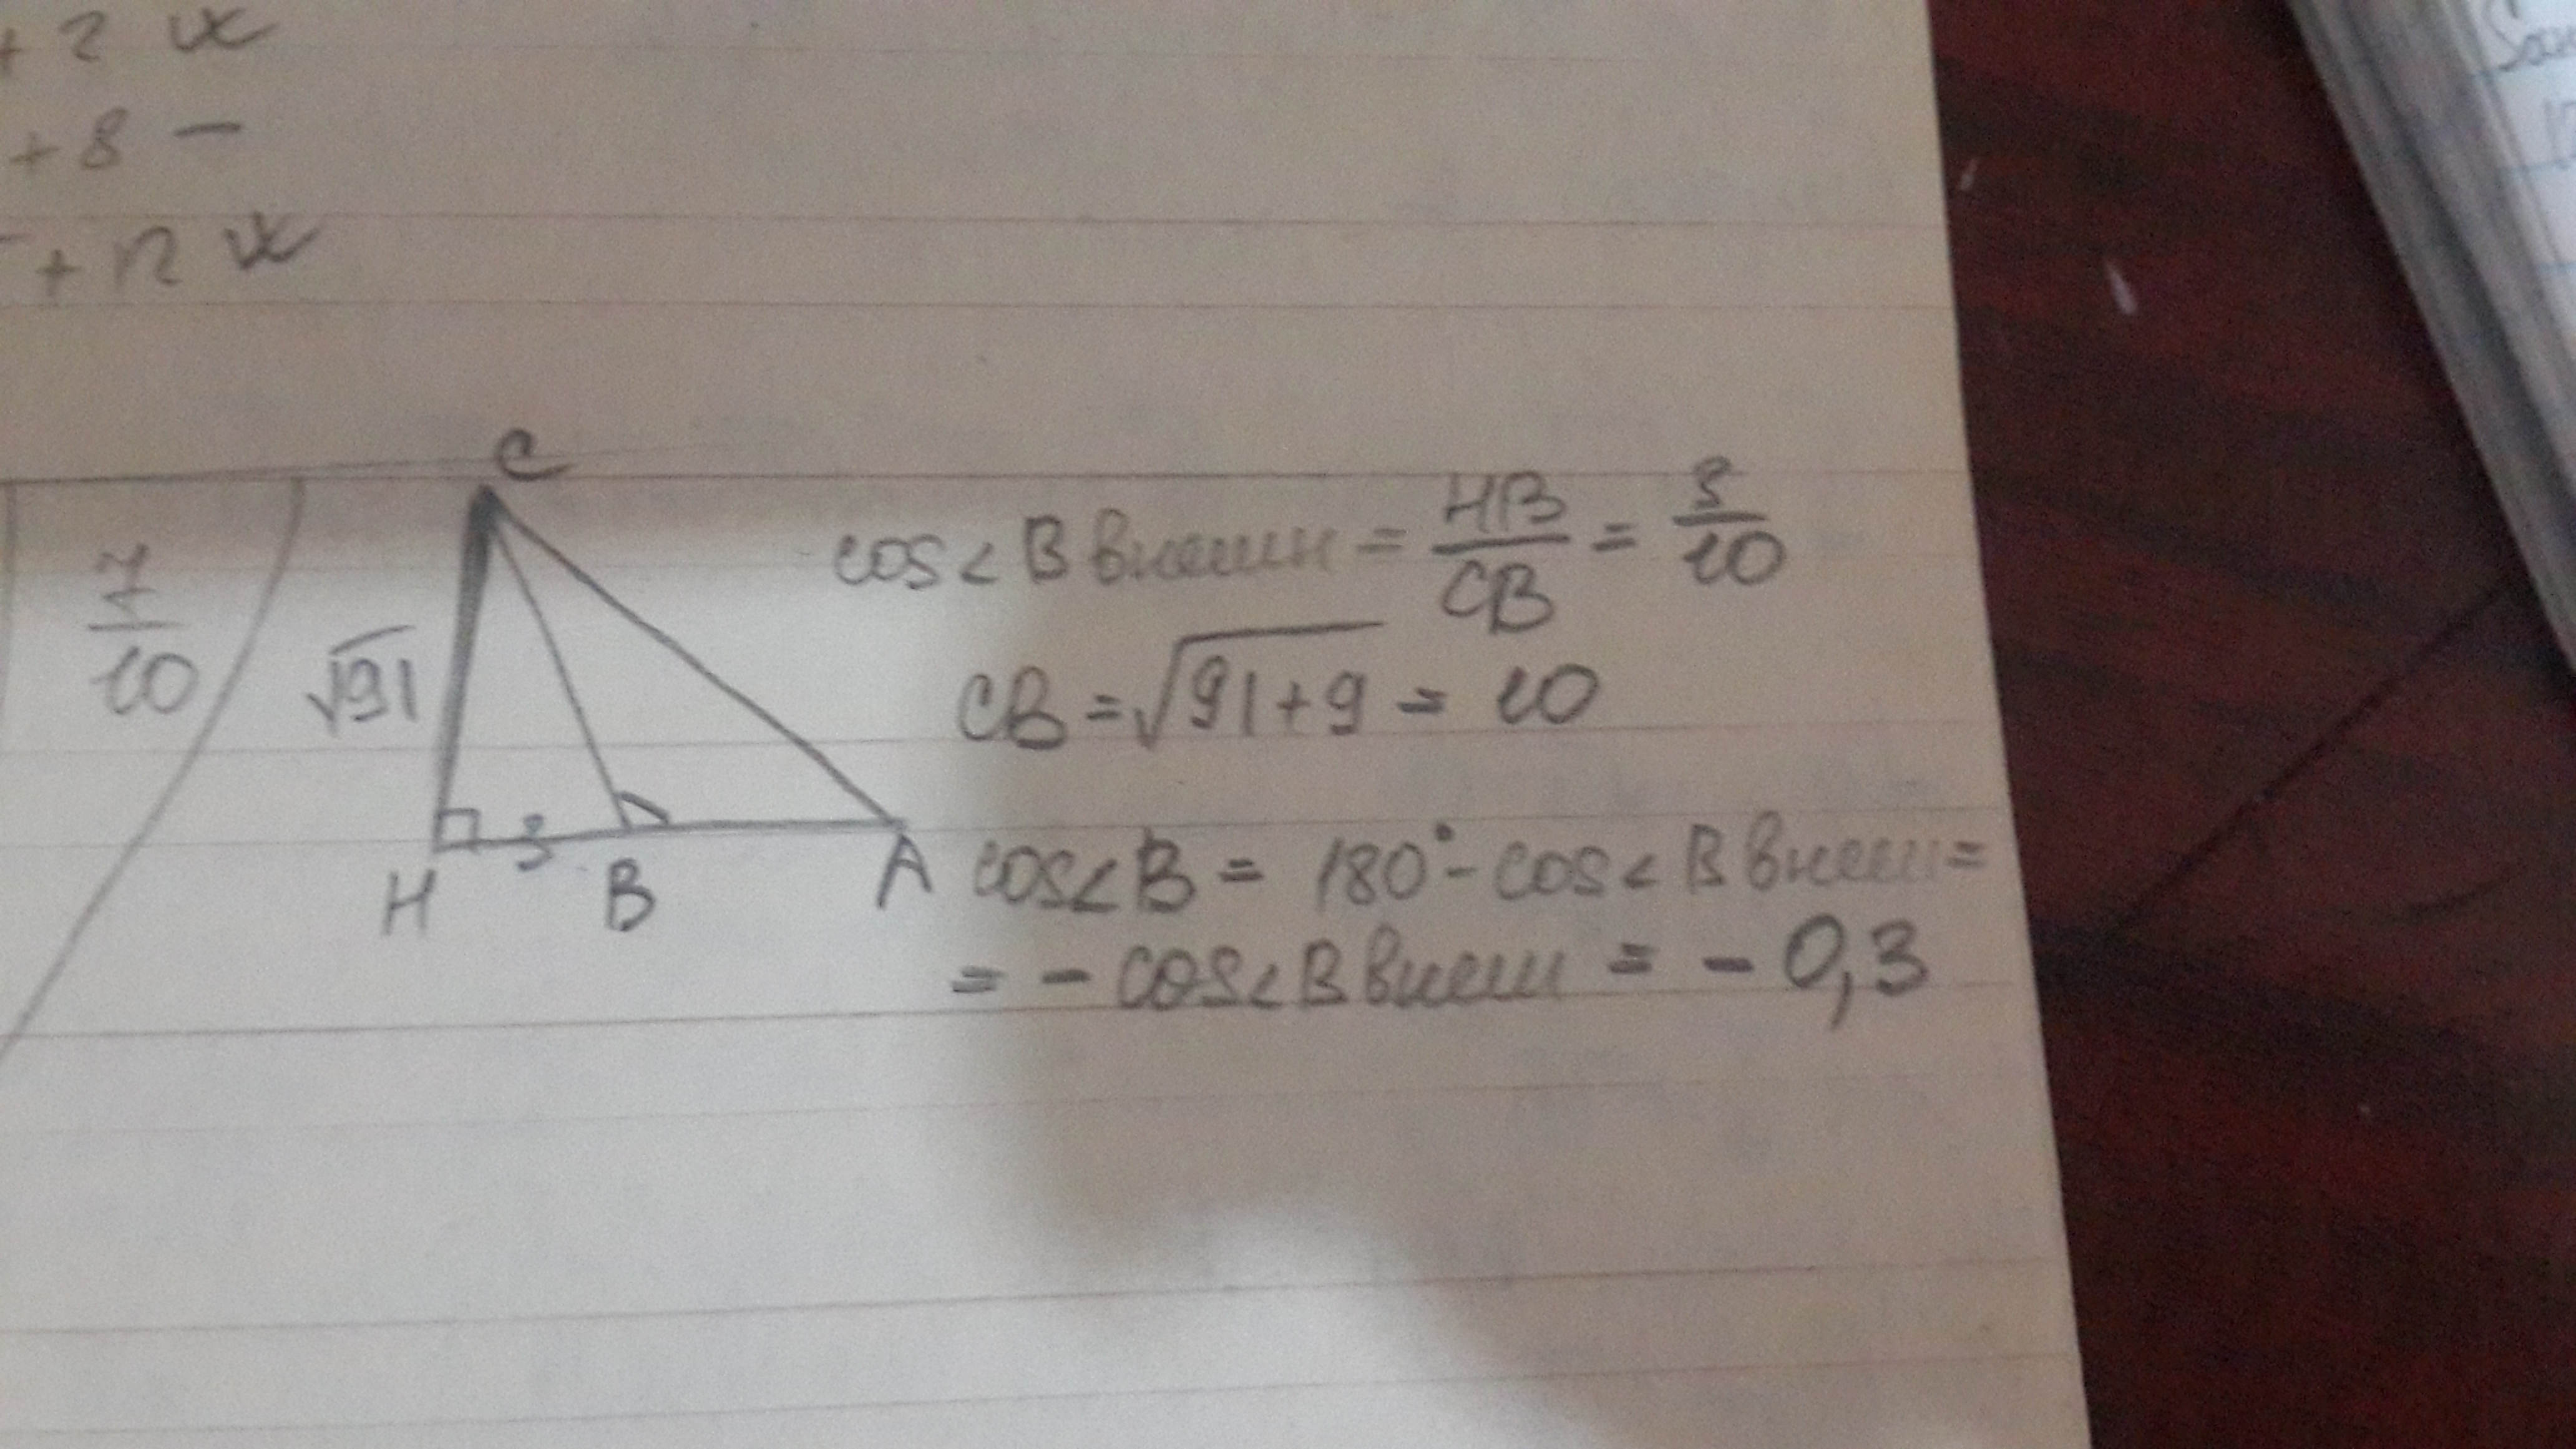 + 2 ж
+ 8 —
+ 12 ж
7
10
C
√91
3
H
B
A
cos∠B внешн = HB/CB = 3/10
CB = √91+9 = 10
cos∠B = 180° - cos∠B внеш =
= - cos∠B внеш = - 0,3